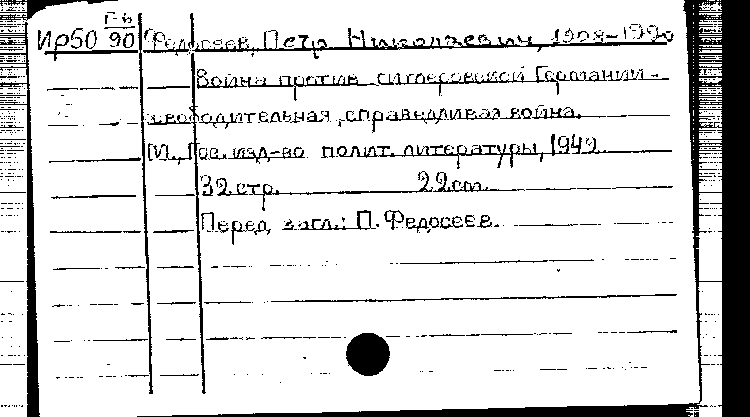 Гь
Ир50 90 Федосеев, Петр Николаевич, 1908-1990
Война против гитлеровской Германии -
освободительная, справедливая война.
М., Гос. изд-во полит. литературы, 1942.
32 стр. 22 cm.
Перед загл.: П. Федосеев.